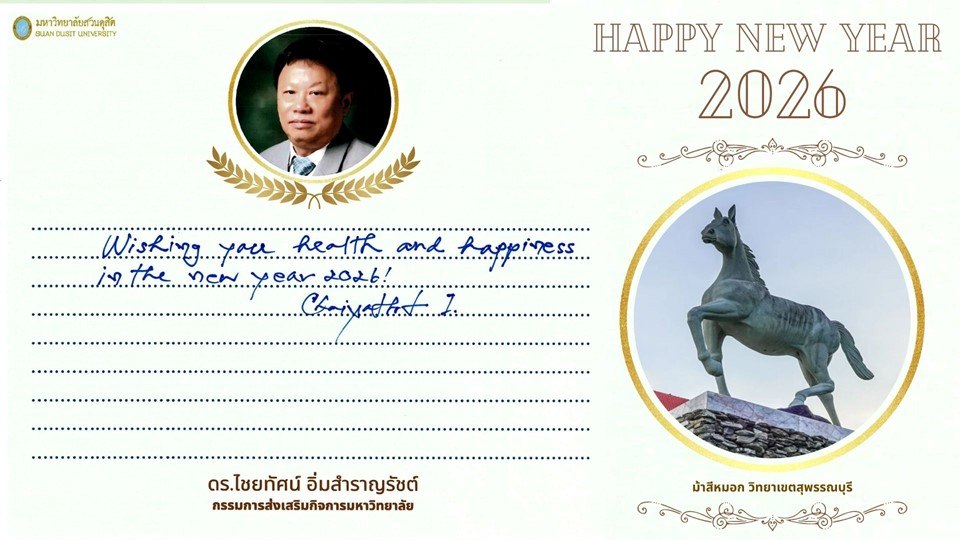 มหาวิทยาลัยสวนดุสิต
SUAN DUSIT UNIVERSITY
Wishing you health and happiness
in the new year 2026!
Chaiyathat I.
ดร.ไชยทัศน์ อิ่มสำราญรัชต์
กรรมการส่งเสริมกิจการมหาวิทยาลัย
HAPPY NEW YEAR
2026
ม้าสีหมอก วิทยาเขตสุพรรณบุรี